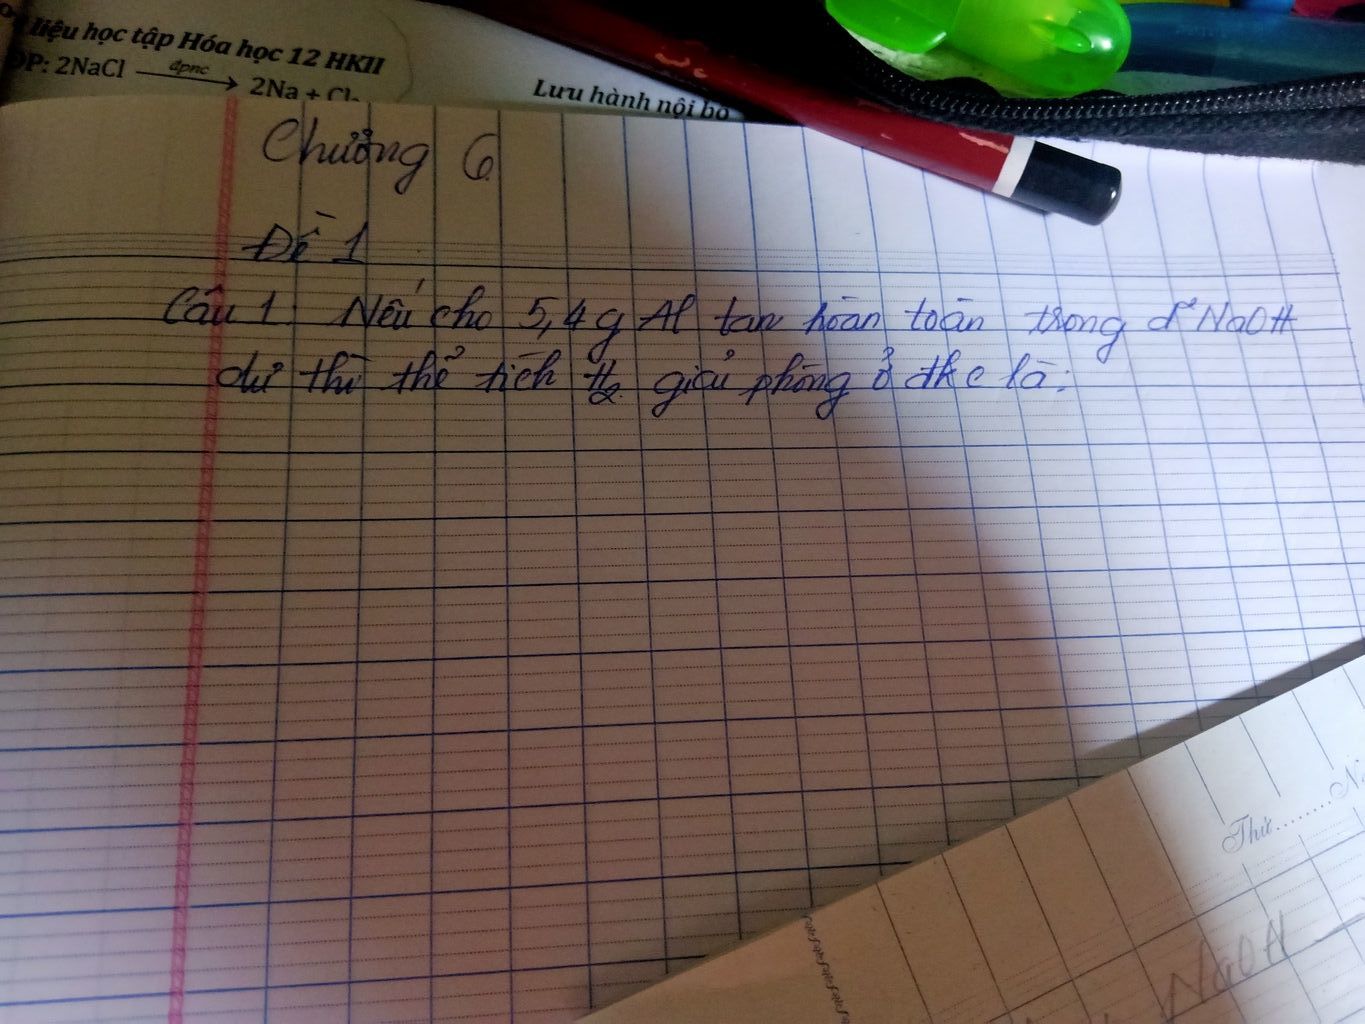 liệu học tập Hóa học 12 HKII
ĐP: 2NaCl đpnc 2Na + Cl₂
Lưu hành nội bộ
Chương 6
Đề 1
Câu 1: Nếu cho 5,4 g Al tan hoàn toàn trong d² NaOH
dư thì thể tích H₂ giải phóng ở đkc là:
Thứ
NaOH